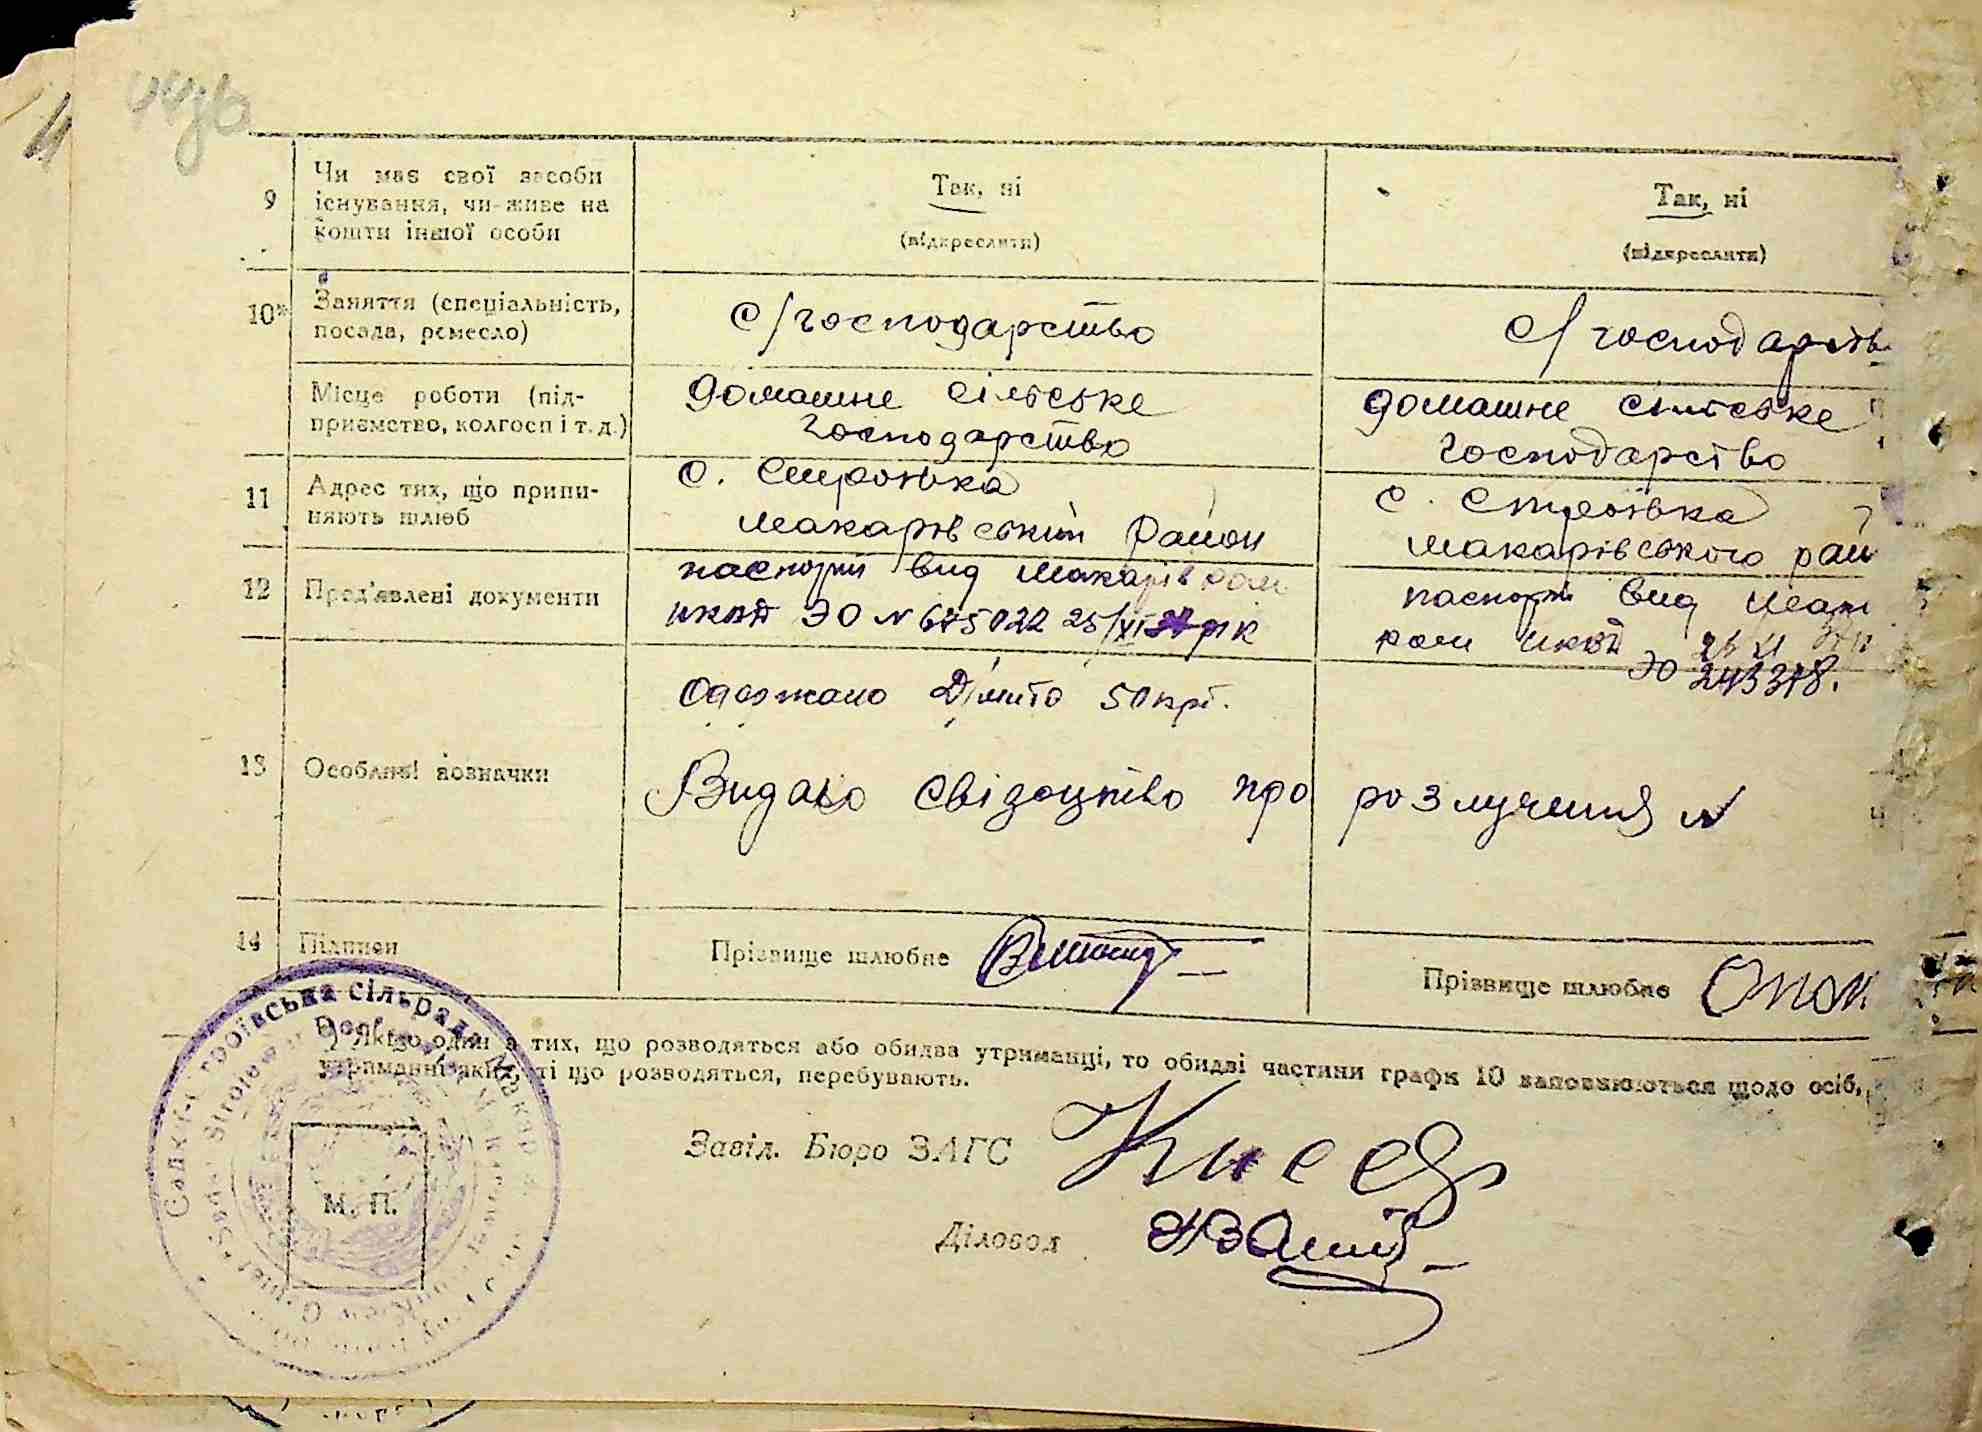 9
Чи має свої засоби
існування, чи живе на
кошти іншої особи
Так, ні
(підкреслити)
Так, ні
(підкреслити)
10*
Заняття (спеціальність,
посада, ремесло)
с/господарство
с/господарств
Місце роботи (під-
приємство, колгосп і т. д.)
домашне сільське
господарство
домашне сільське
господарство
11
Адрес тих, що припи-
няють шлюб
с. Строївка
Макарівський район
с. Строївка
Макарівського рай
12
Пред'явлені документи
паспорт вид Макарів рай
НКВД ЭО № 675022 25/XI 37 рік
паспорт вид Мака
рай НКВД
ЭО 243378.
13
Особливі позначки
Одержано Д/мито 50 крб.
Видано свідоцтво про розлучення №
14
Підписи
Прізвище шлюбне
Прізвище шлюбне
*) Якщо один з тих, що розводяться або обидва утриманці, то обидві частини графи 10 заповнюються щодо осіб,
утриманні яких ті що розводяться, перебувають.
Завід. Бюро ЗАГС
М. П.
Діловод